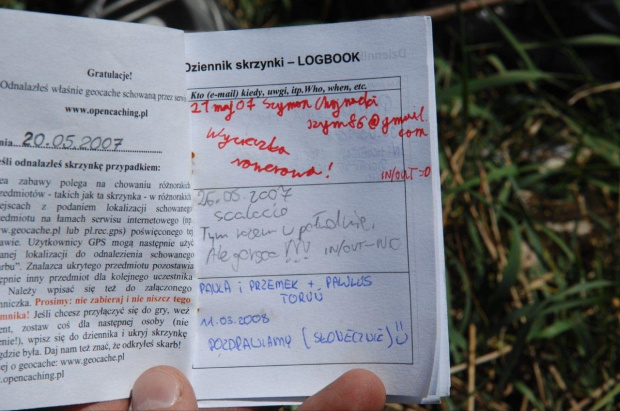 Gratulacje!
Odnalazłeś właśnie geocache schowaną przez serwi
www.opencaching.pl
nia 20.05.2007
eśli odnalazłeś skrzynkę przypadkiem:
ea zabawy polega na chowaniu różnorakich
rzedmiotów - takich jak ta skrzynka - w różnorakich
iejscach z podaniem lokalizacji schowanego
edmiotu na łamach serwisu internetowego (np.
w.geocache.pl lub pl.rec.gps) poświęconego tej
awie. Użytkownicy GPS mogą następnie użyć
anej lokalizacji do odnalezienia schowanego
rbu". Znalazca ukrytego przedmiotu pozostawia
ępnie inny przedmiot dla kolejnego uczestnika
Należy wpisać się też do załączonego
nniczka. Prosimy: nie zabieraj i nie niszcz tego
mnika! Jeśli chcesz przyłączyć się do gry, weź
ent, zostaw coś dla następnej osoby (nie
enie!), wpisz się do dziennika i ukryj skrzynkę
gdzie była. Daj nam też znać, że odkryłeś skarb!
ej o geocache: www.geocache.pl
.opencaching.pl
Dziennik skrzynki – LOGBOOK
Kto (e-mail) kiedy, uwgi, itp. Who, when, etc.
21 maj 07 Szymon
szym86@gmail.
com
Wycieczka
rowerowa!
IN/OUT=0
26.05.2007
scalecio
Tym razem u południe,
Ale gorąco !!! IN/OUT-NO
PAULA i PRZEMEK + PAWLUS
TORUŃ
11.03.2008
POZDRAWIAMY (SŁONECZNIE)